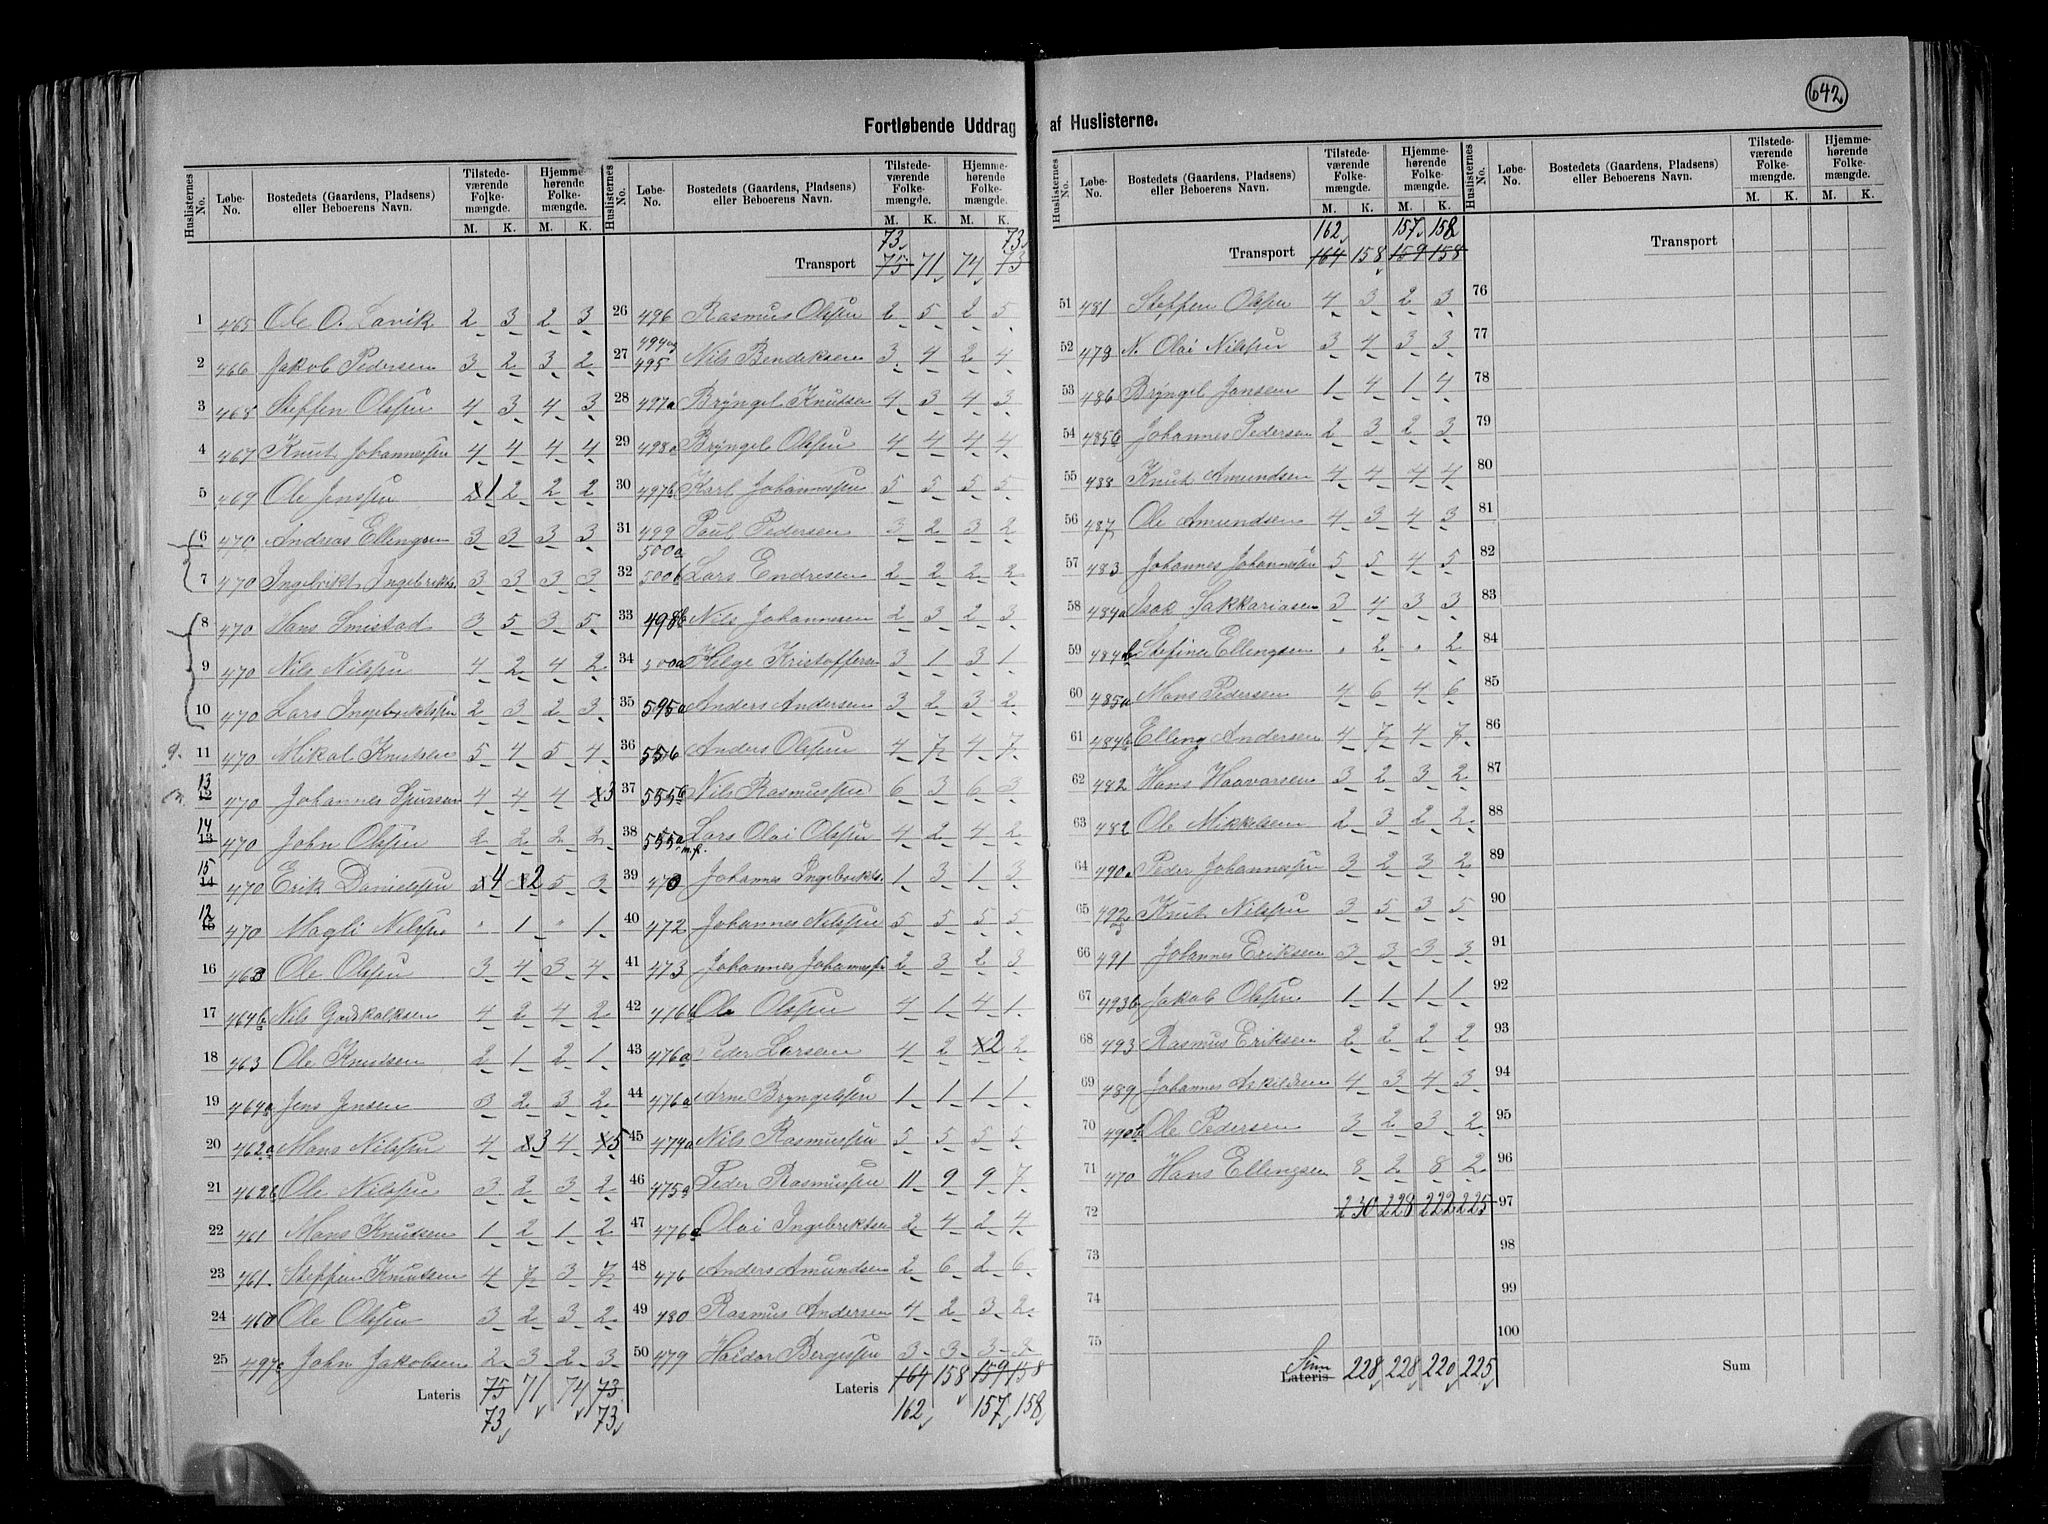 642
Fortløbende Uddrag af Huslisterne.
Huslisternes No. Løbe-No. Bostedets (Gaardens, Pladsens) eller Beboerens Navn. Tilstedeværende Folkemængde. M. K. Hjemmehørende Folkemængde. M. K.
1 465 Ole O. Lavik 2 3 2 3
2 466 Jakob Pedersen 3 2 3 2
3 468 Steffen Olsen 4 3 4 3
4 467 Knut Johannessen 4 4 4 4
5 469 Ole Jenssen 1 2 2 2
6 470 Andreas Ellingsen 3 3 3 3
7 470 Ingebrikt Ingebrikts. 3 3 3 3
8 470 Hans Smistad 3 5 3 5
9 470 Nils Nilssen 4 2 4 2
10 470 Lars Ingebriktssen 2 3 2 3
11 470 Mikal Knutsen 5 4 5 4
13 12 470 Johannes 4 4 4 3
14 13 470 John Olssen 2 2 2 2
15 14 470 Erik Danielssen 4 2 5 3
12 15 470 Magli Nilssen " 1 " 1
16 463 Ole Olssen 3 4 3 4
17 464b Nils Godskalksen 4 2 4 2
18 463 Ole Knutsen 2 1 2 1
19 464a Jens Jensen 3 2 3 2
20 462a Mons Nilssen 4 3 4 5
21 462b Ole Nilssen 3 2 3 2
22 461 Mons Knutsen 1 2 1 2
23 461 Steffen Knutsen 4 7 3 7
24 460 Ole Olssen 3 2 3 2
25 497c John Jakobsen 2 3 2 3
Lateris 75 71 74 73
73 73
73 73
Transport 75 71 74 73
26 496 Rasmus Olssen 2 5 2 5
27 494 og 495 Nils Bendiksen 3 4 2 4
28 497a Brÿngel Knutsen 4 3 4 3
29 498a Brÿngel Olssen 4 4 4 4
30 497b Karl Johannessen 5 5 5 5
31 499 Paul Pedersen 3 2 3 2
32 500a 500b Lars Endresen 2 2 2 2
33 498b Nils Johannesen 2 3 2 3
34 500a Helge Kristoffersen 3 1 3 1
35 595a Anders Andersen 3 2 3 2
36 556 Anders Olssen 4 7 4 7
37 555b Nils Rasmussen 6 3 6 3
38 555a m.fl. Lars Olai Olssen 4 2 4 2
39 470 Johannes Ingebrikts. 1 3 1 3
40 472 Johannes Nilssen 5 5 5 5
41 473 Johannes Johannessen 2 3 2 3
42 476b Ole Olssen 4 1 4 1
43 476a Peder Larsen 4 2 2 2
44 476a Arne Bryngelssen 1 1 1 1
45 474a Nils Rasmussen 5 5 5 5
46 475a Peder Rasmussen 11 9 9 7
47 476a Olai Ingebriktsen 2 4 2 4
48 476 Anders Amundsen 2 6 2 6
49 480 Rasmus Andersen 4 2 3 2
50 479 Haldor Bergessen 3 3 3 3
Lateris 164 158 159 158
162 157 158
Huslisternes No. Løbe-No. Bostedets (Gaardens, Pladsens) eller Beboerens Navn. Tilstedeværende Folkemængde. M. K. Hjemmehørende Folkemængde. M. K.
162 157 158
Transport 164 158 159 158
51 481 Steffen Olssen 4 3 2 3
52 478 N. Olai Nilssen 3 4 3 3
53 486 Brÿngel Jansen 1 4 1 4
54 485b Johannes Pedersen 2 3 2 3
55 488 Knut Amundsen 4 4 4 4
56 487 Ole Amundsen 4 3 4 3
57 483 Johannes Johannessen 5 5 4 5
58 484a Isak Sakkariasen 3 4 3 3
59 484b Stefine Ellingsen " 2 " 2
60 485a Mons Pedersen 4 6 4 6
61 484b Elling Andersen 4 7 4 7
62 482 Hans Haavarsen 3 2 3 2
63 482 Ole Mikkelsen 2 3 2 2
64 490a Peder Johannessen 3 2 3 2
65 492 Knut Nilssen 3 5 3 5
66 491 Johannes Eriksen 3 3 3 3
67 493b Jakob Olssen 1 1 1 1
68 493 Rasmus Eriksen 2 2 2 2
69 489 Johannes Askildsen 4 3 4 3
70 490b Ole Pedersen 3 2 3 2
71 470 Hans Ellingsen 8 2 8 2
72 230 228 222 225
73
74
75
Sum
Lateris 228 228 220 225
Huslisternes No. Løbe-No. Bostedets (Gaardens, Pladsens) eller Beboerens Navn. Tilstedeværende Folkemængde. M. K. Hjemmehørende Folkemængde. M. K.
Transport
76
77
78
79
80
81
82
83
84
85
86
87
88
89
90
91
92
93
94
95
96
97
98
99
100
Sum